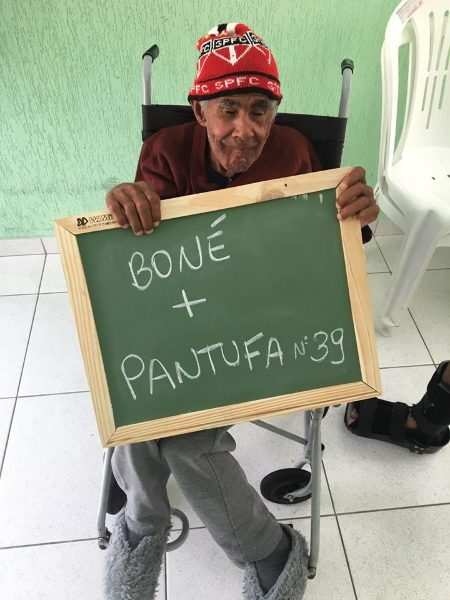 SPFC
FC SPFC
BONÉ
+
PANTUFA Nº 39